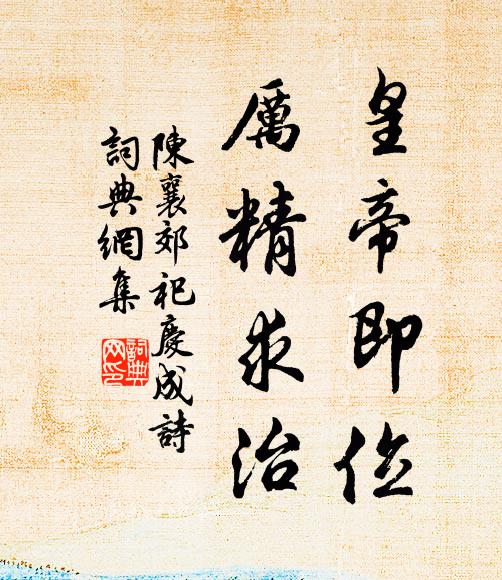 皇帝即位
厲精求治
陳襄郊祀慶成詩
詞典網集
詞典网印